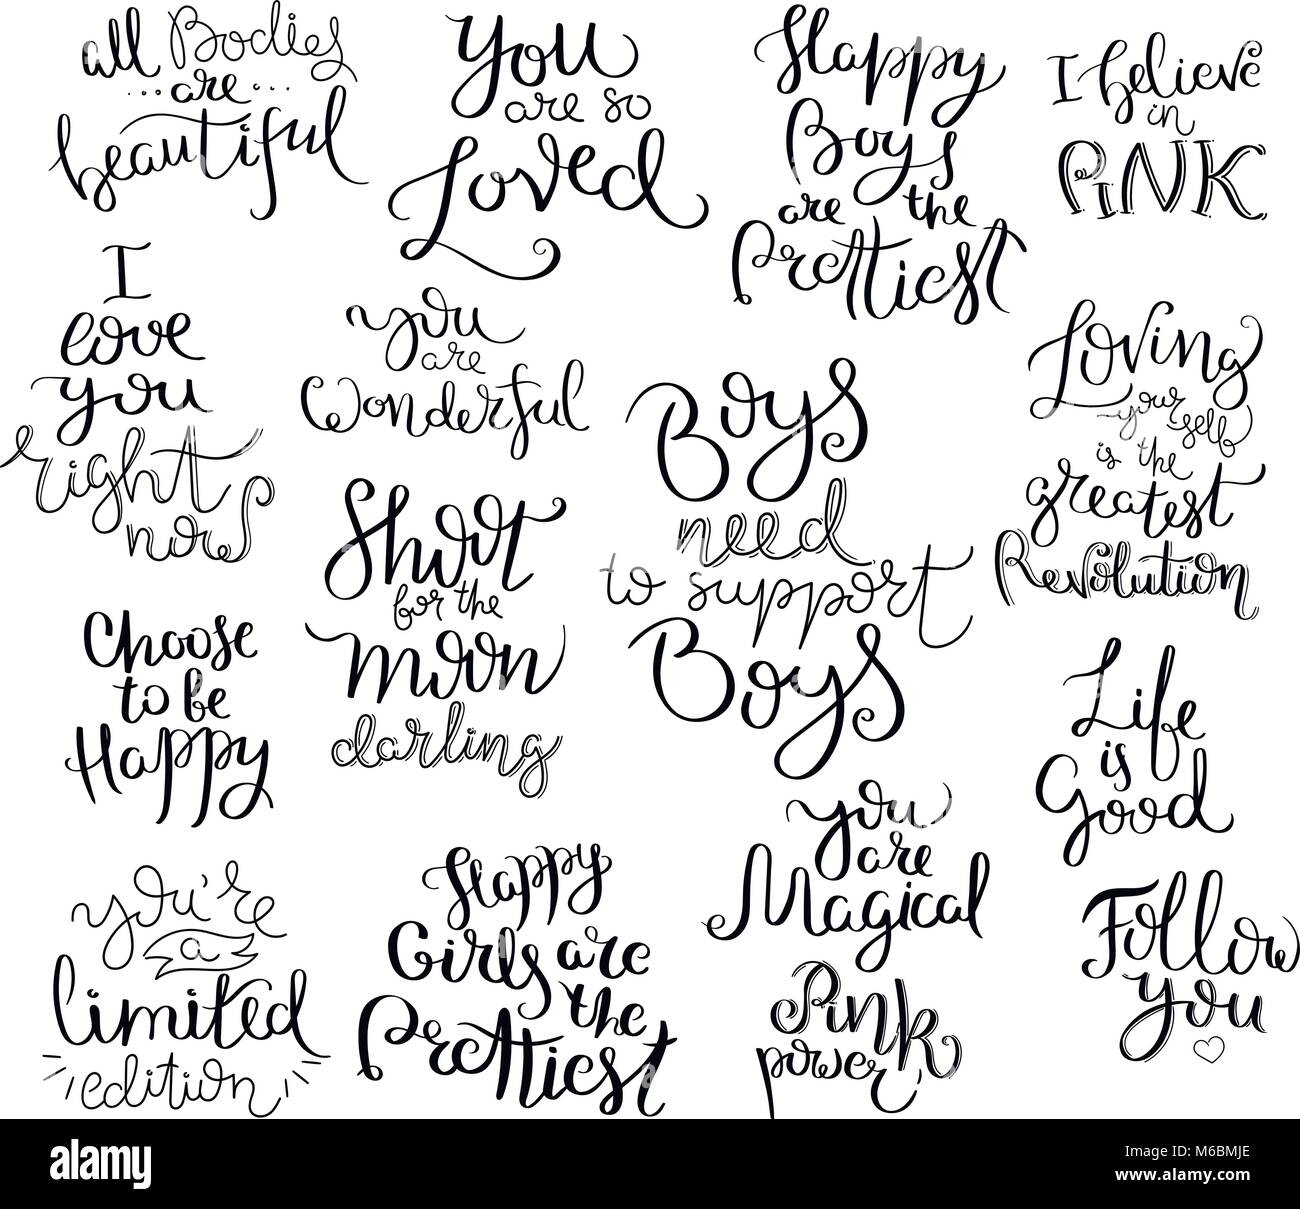 all Bodies
...are...
beautiful
You
are so
Loved
Happy
Boys
are the
Prettiest
I believe
in
PiNK
I
love
you
right
now
you
are
Wonderful
Boys
need
to support
Boys
Loving
your self
is the
greatest
Revolution
Shoot
for the
moon
darling
Choose
to be
Happy
Life
is
Good
you
are
Magical
you're
a
limited
edition
Happy
Girls are
the
Prettiest
Pink
power
Follow
you
alamy stock photo
M6BMJE
www.alamy.com